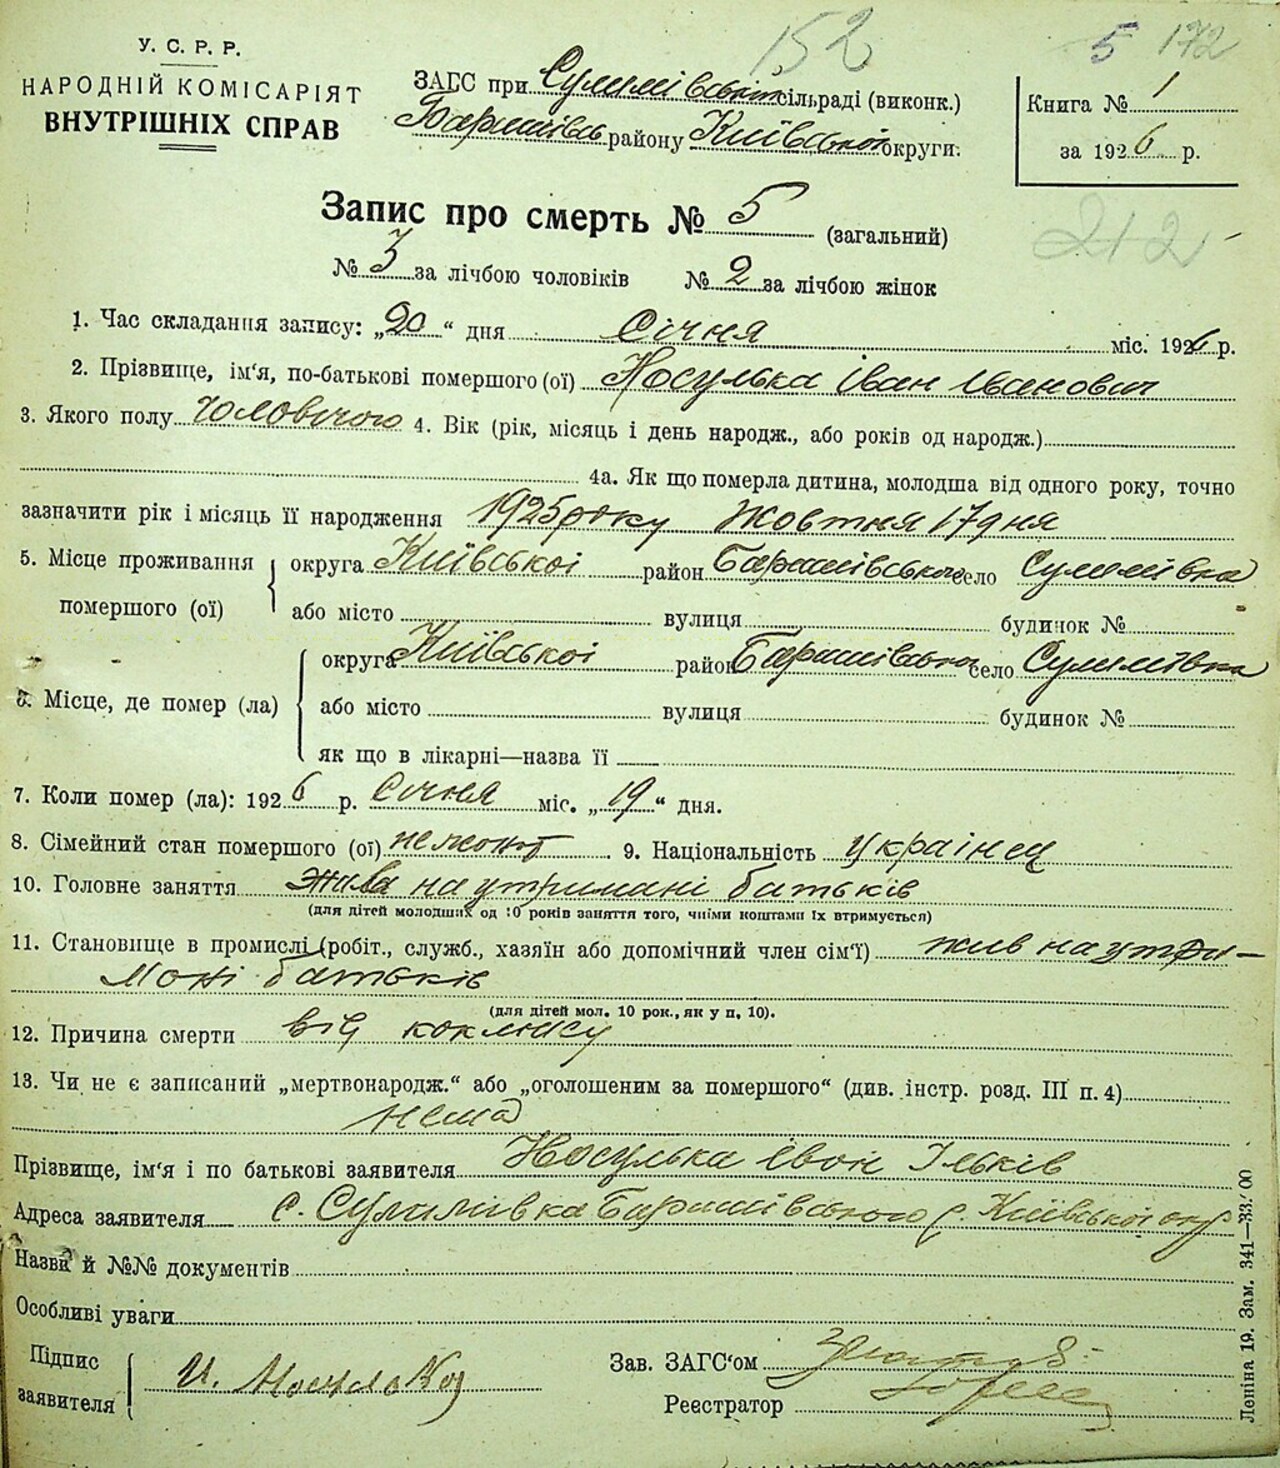 152 5 172
У. С. Р. Р.
НАРОДНІЙ КОМІСАРІЯТ
ВНУТРІШНІХ СПРАВ
ЗАГС при Сулимівській сільраді (виконк.)
Баришівськ району Київської округи.
Книга № 1
за 1926 р.
212
Запис про смерть № 5 (загальний)
№ 3 за лічбою чоловіків № 2 за лічбою жінок
1. Час складання запису: „20“ дня Січня міс. 1926 р.
2. Прізвище, ім'я, по-батькові помершого (ої) Носулька Іван Іванович
3. Якого полу чоловічого 4. Вік (рік, місяць і день народж., або років од народж.)
4а. Як що померла дитина, молодша від одного року, точно
зазначити рік і місяць її народження 1925 року Жовтня 17 дня
5. Місце проживання помершого (ої) округа Київської район Баришівського село Сулимівка
або місто вулиця будинок №
6. Місце, де помер (ла) округа Київської район Баришівського село Сулимівка
або місто вулиця будинок №
як що в лікарні—назва її
7. Коли помер (ла): 1926 р. Січня міс. „19“ дня.
8. Сімейний стан помершого (ої) 9. Національність українец
10. Головне заняття жив на утримані батьків
(для дітей молодших од 10 років заняття того, чиїми коштами їх втримується)
11. Становище в промислі (робіт., служб., хазяїн або допомічний член сім'ї) жив на утри-
мані батьків
(для дітей мол. 10 рок., як у п. 10).
12. Причина смерти від коклюсу
13. Чи не є записаний „мертвонародж.“ або „оголошеним за помершого“ (див. інстр. розд. III п. 4)
нема
Прізвище, ім'я і по батькові заявителя Носулька Іван Ільків
Адреса заявителя с. Сулимівка Баришівського р. Київської окр
Назви й №№ документів
Особливі уваги
Підпис заявителя И. Носулька
Зав. ЗАГС'ом
Реєстратор
Леніна 19. Зам. 341—33.000